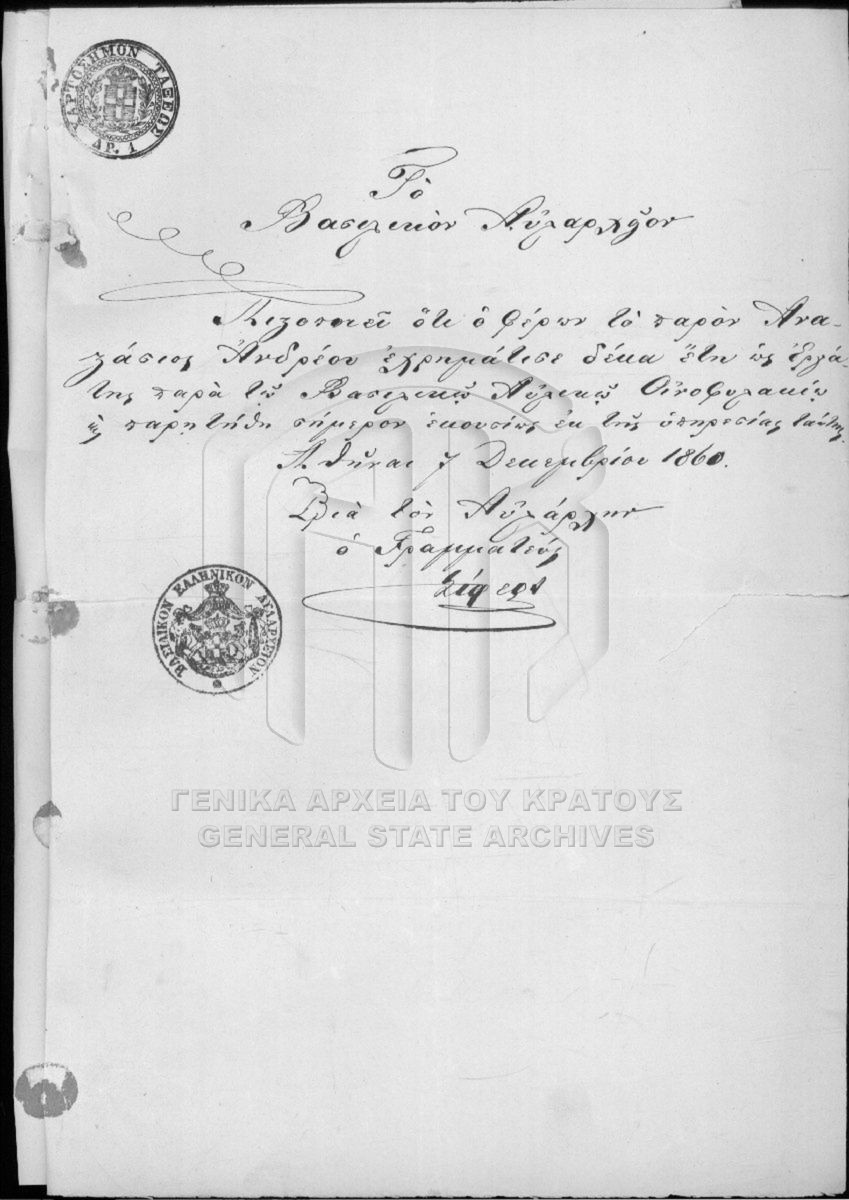 ΧΑΡΤΟΣΗΜΟΝ ΤΑΞΕΩΣ
ΔΡ. 1
Τὸ
Βασιλικὸν Αὐλαρχεῖον
Πιστοποιεῖ ὅτι ὁ φέρων τὸ παρὸν Ανα-
στάσιος Ἀνδρέου ἐχρημάτισε δέκα ἔτη ὡς ἐργά-
της παρὰ τῷ Βασιλικῷ Αὐλικῷ Οἰνοφυλακίῳ
κ παρῃτήθη σήμερον ἑκουσίως ἐκ τῆς ὑπηρεσίας ταύτης.
Ἀθῆναι 7 Δεκεμβρίου 1860.
Διὰ τὸν Αὐλάρχην
ὁ Γραμματεύς
ΒΑΣΙΛΙΚΟΝ ΕΛΛΗΝΙΚΟΝ ΑΥΛΑΡΧΕΙΟΝ
ΓΕΝΙΚΑ ΑΡΧΕΙΑ ΤΟΥ ΚΡΑΤΟΥΣ
GENERAL STATE ARCHIVES